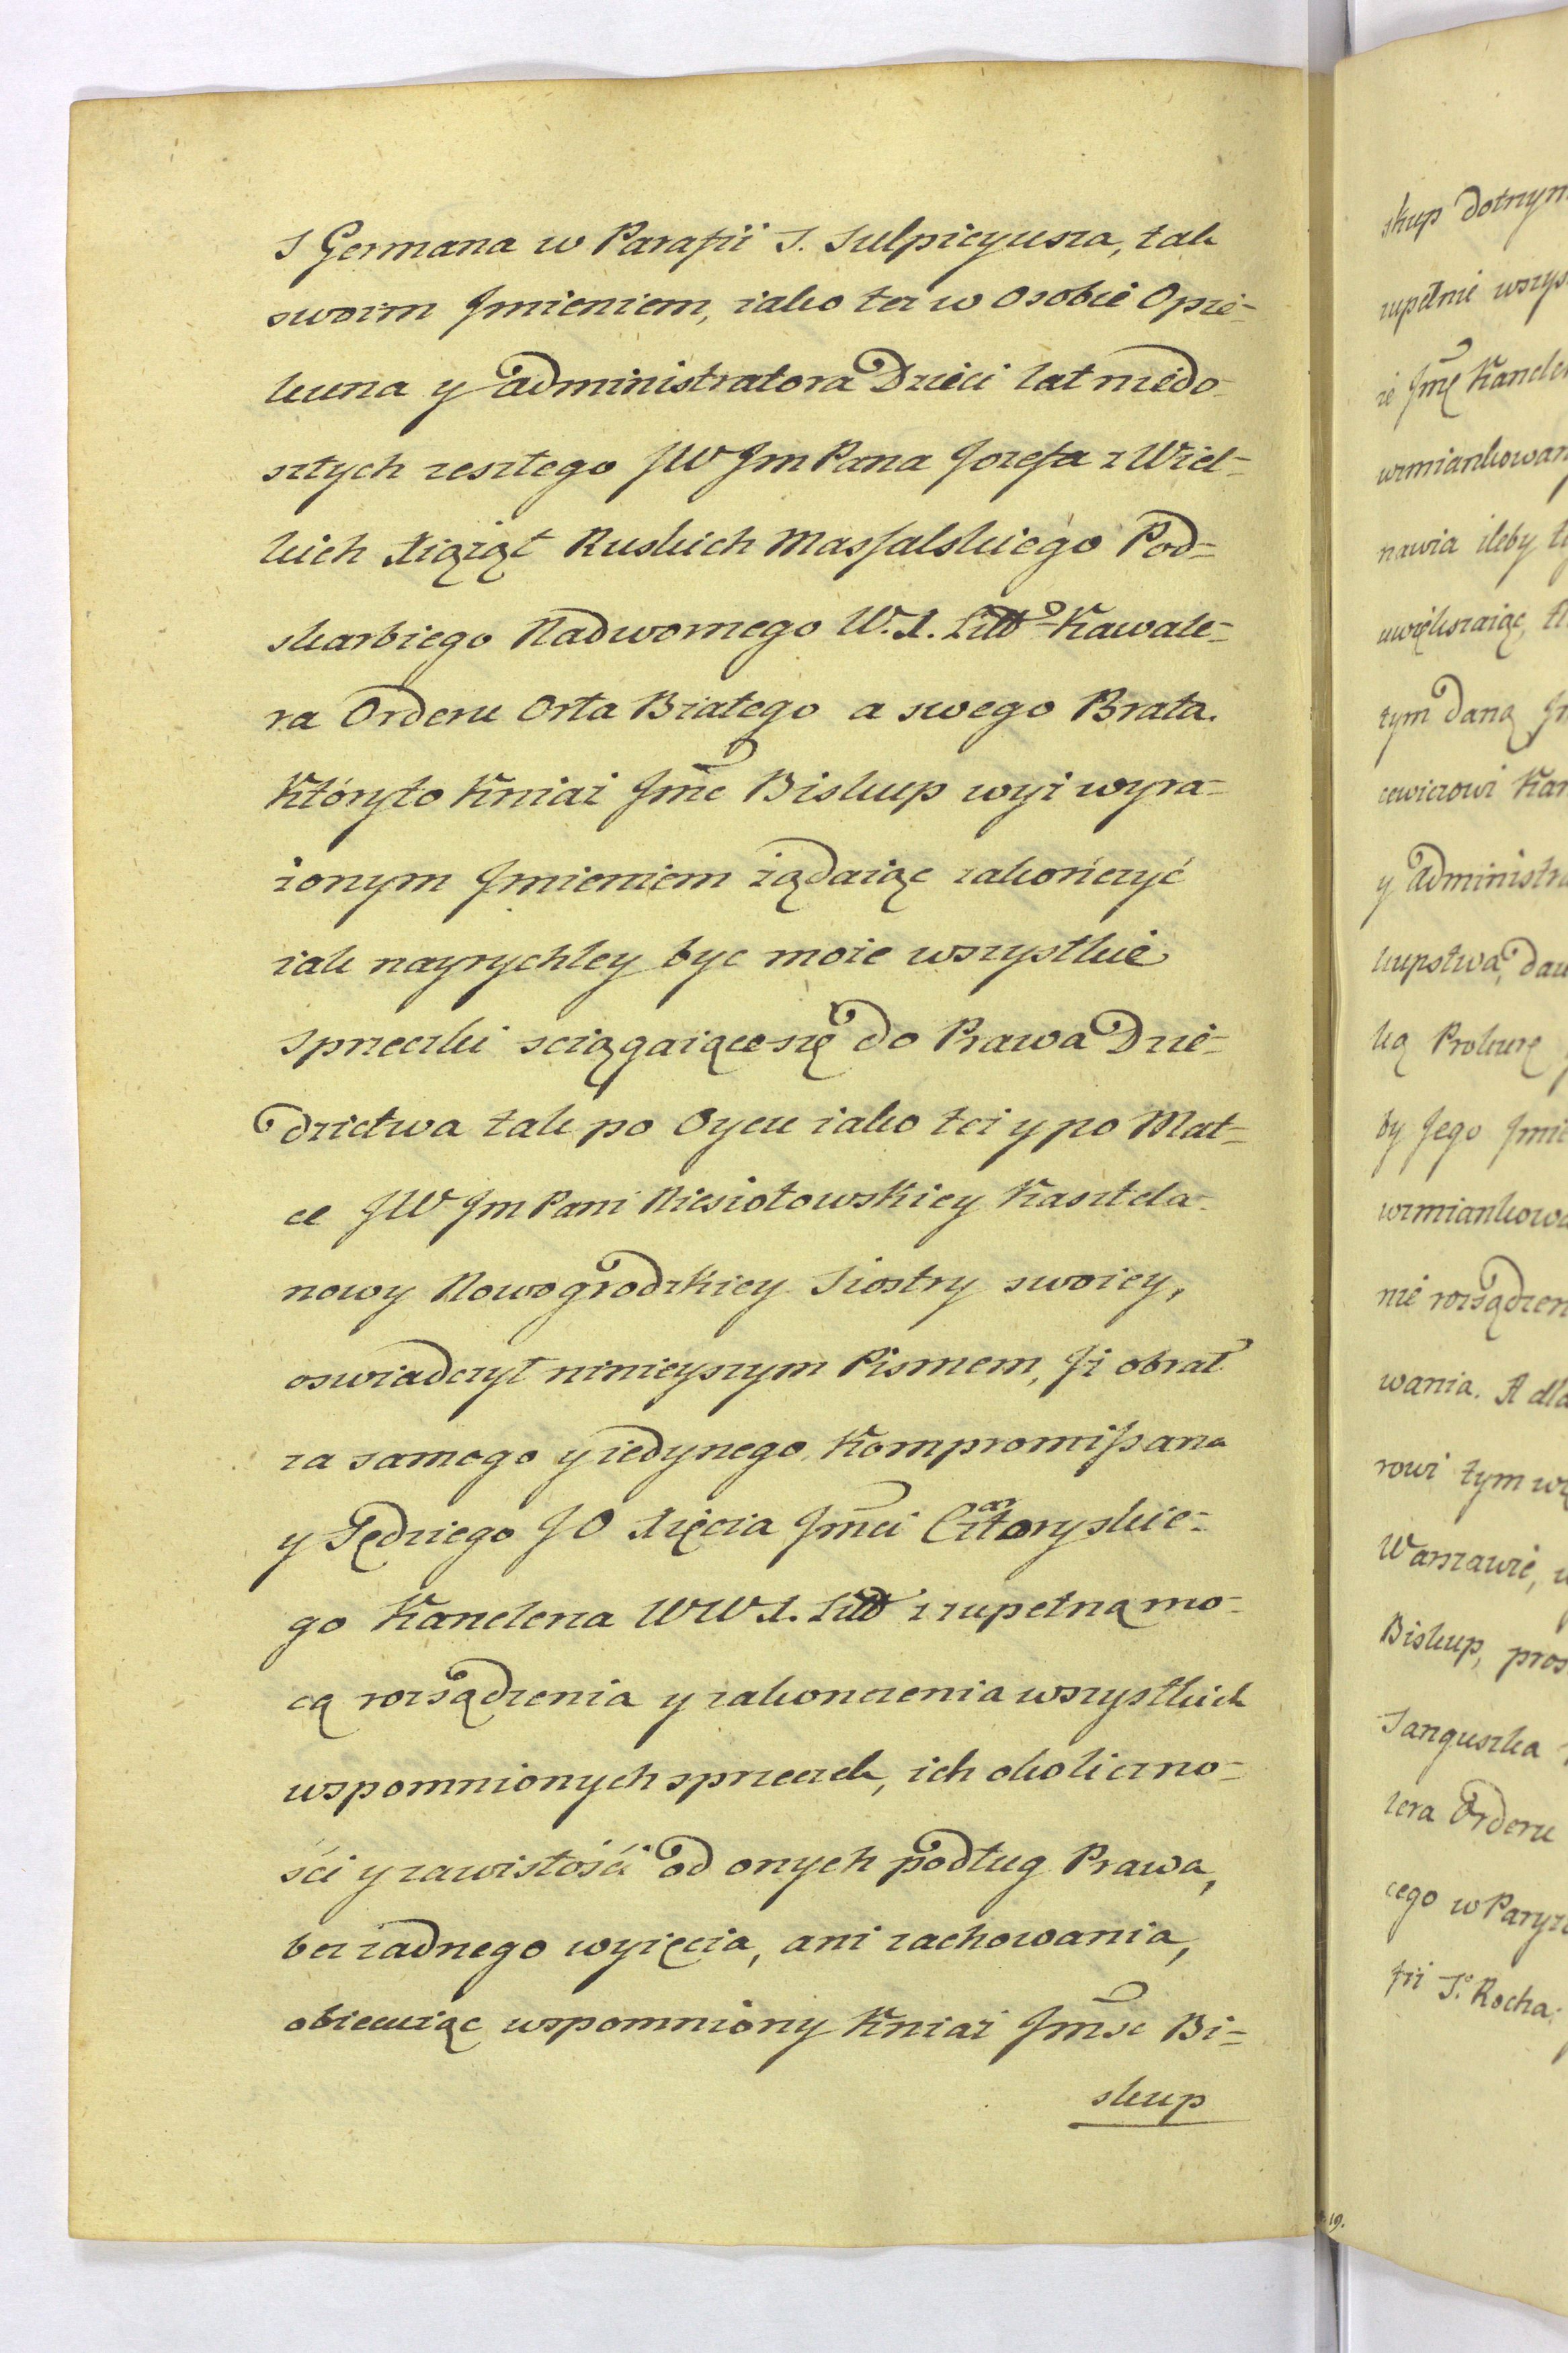 S Germana w Parafii S. Sulpicyusza, tak
swoim Jmieniem, iako tez w Osobie Opie-
kuna y administratora Dzieci lat niedo-
szłych zeszłego JW Jm Pana Jozefa z Wiel-
kich Xiążąt Ruskich Massalskiego Pod-
skarbiego Nadwornego W. X. Litto Kawale-
ra Orderu Orła Białego a swego Brata.
Któryto Kniaź Jmc Biskup wyż wyra-
żonym Jmieniem żądaiąc zakończyć
iak nayrychley byc może wszystkie
sprzeczki sciągaiące się do Prawa Dzie-
dzictwa tak po Oycu iako też y po Mat-
ce JW Jm Pani Niesiołowskiey Kasztela-
nowy Nowogrodzkiey Siostry swoiey,
oswiadczył ninieyszym Pismem, Jż obrał
za samego y iedynego Kompromissana
y Sędziego JO Xięcia Jmci Czartoryskie-
go Kanclerza WWX. Litt z zupełną mo-
cą rozsądzenia y zakonczenia wszystkich
wspomnionych sprzeczek, ich okoliczno-
ści y zawisłości od onych podług Prawa,
bez żadnego wyięcia, ani zachowania,
obiecuiąc wspomniony Kniaź Jmsc Bi-
skup
skup dotrzym
zupełnie wszys
ze Jmę Kancle
wzmiankowan
nawia ileby t
uwiększaiąc,
tym daną Jm
cewiczowi Kan
y administra
kupstwa, dau
ką Prokurę
by Jego Jmie
wzmiankowa
nie rozsądzen
wania. A dla
rowi tym w
Warszawie, w
Biskup, pros
Sanguszka
lera Orderu
cego w Paryz
fii S. Rocha
19.